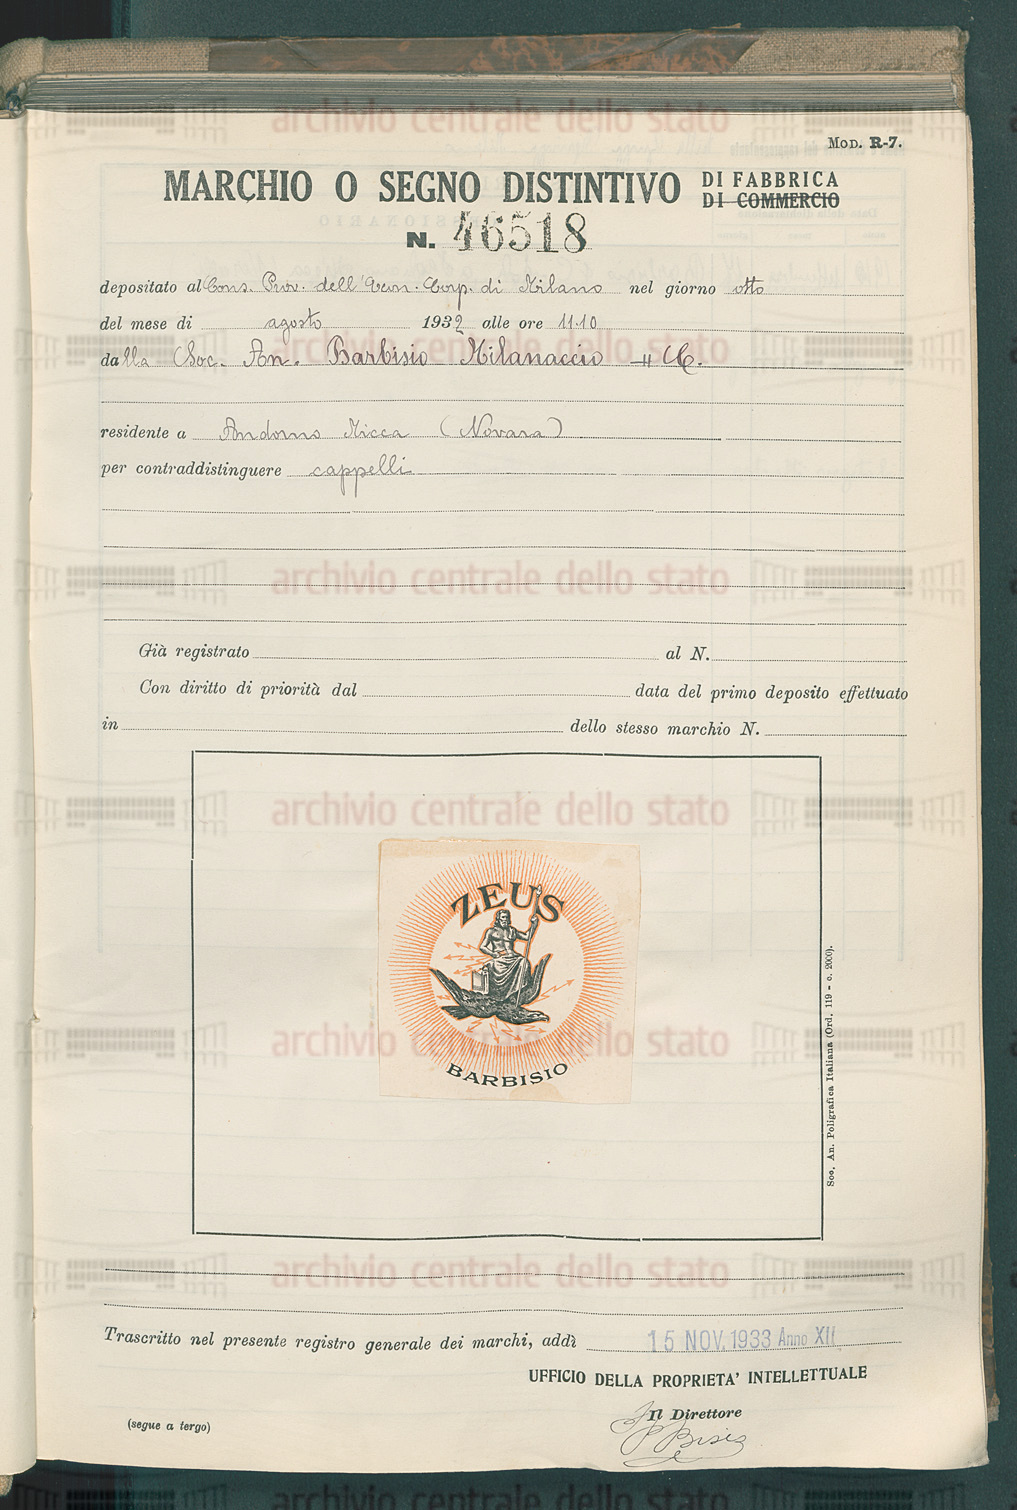 Mod. R-7.
MARCHIO O SEGNO DISTINTIVO DI FABBRICA
DI COMMERCIO
N. 46518
depositato al Cons. Prov. dell'Econ. Corp. di Milano nel giorno otto
del mese di agosto 1932 alle ore 11.10
dalla Soc. An. Barbisio Milanaccio & C.
residente a Andorno Micca (Novara)
per contraddistinguere cappelli
Già registrato al N.
Con diritto di priorità dal data del primo deposito effettuato
in dello stesso marchio N.
ZEUS
BARBISIO
Soc. An. Poligrafica Italiana (Ord. 119 - c. 2000).
Trascritto nel presente registro generale dei marchi, addì 15 NOV. 1933 Anno XII
UFFICIO DELLA PROPRIETA' INTELLETTUALE
Il Direttore
(segue a tergo)
archivio centrale dello stato
archivio centrale dello stato
archivio centrale dello stato
archivio centrale dello stato
archivio centrale dello stato
archivio centrale dello stato